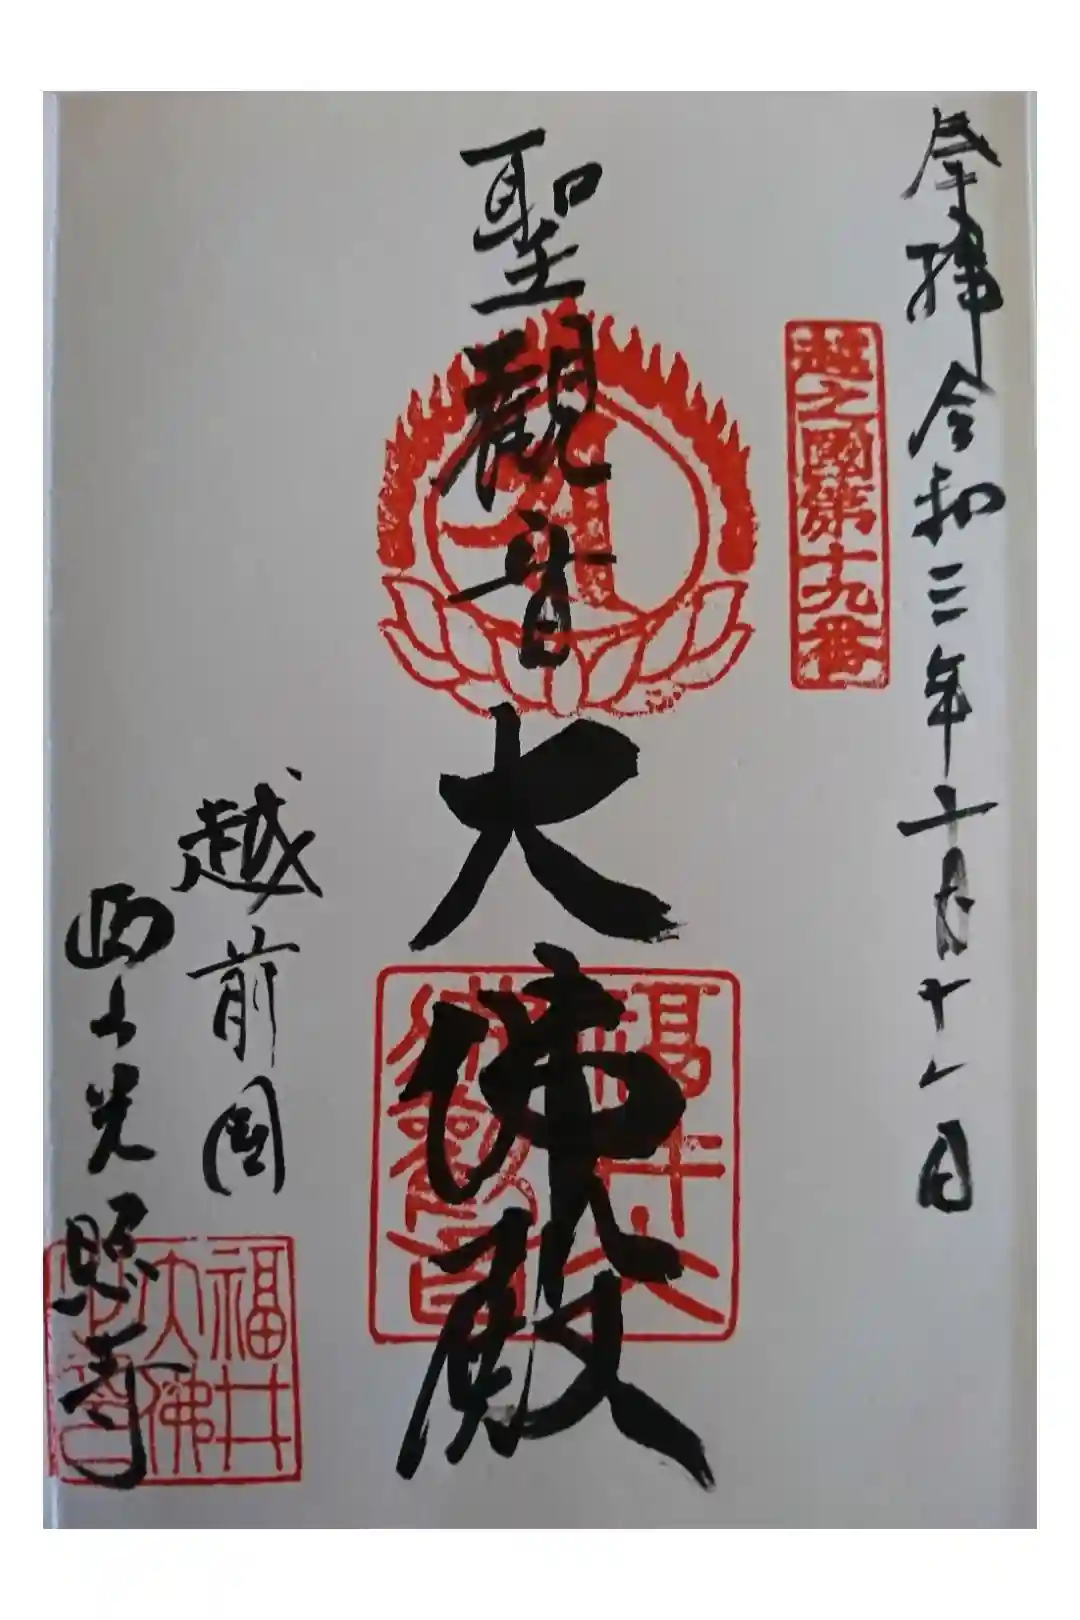 奉拝 令和三年十月十一日
越之國第十九番
聖觀音
大佛殿
福井大佛觀音
越前国
西山光照寺
福井
大佛
觀音